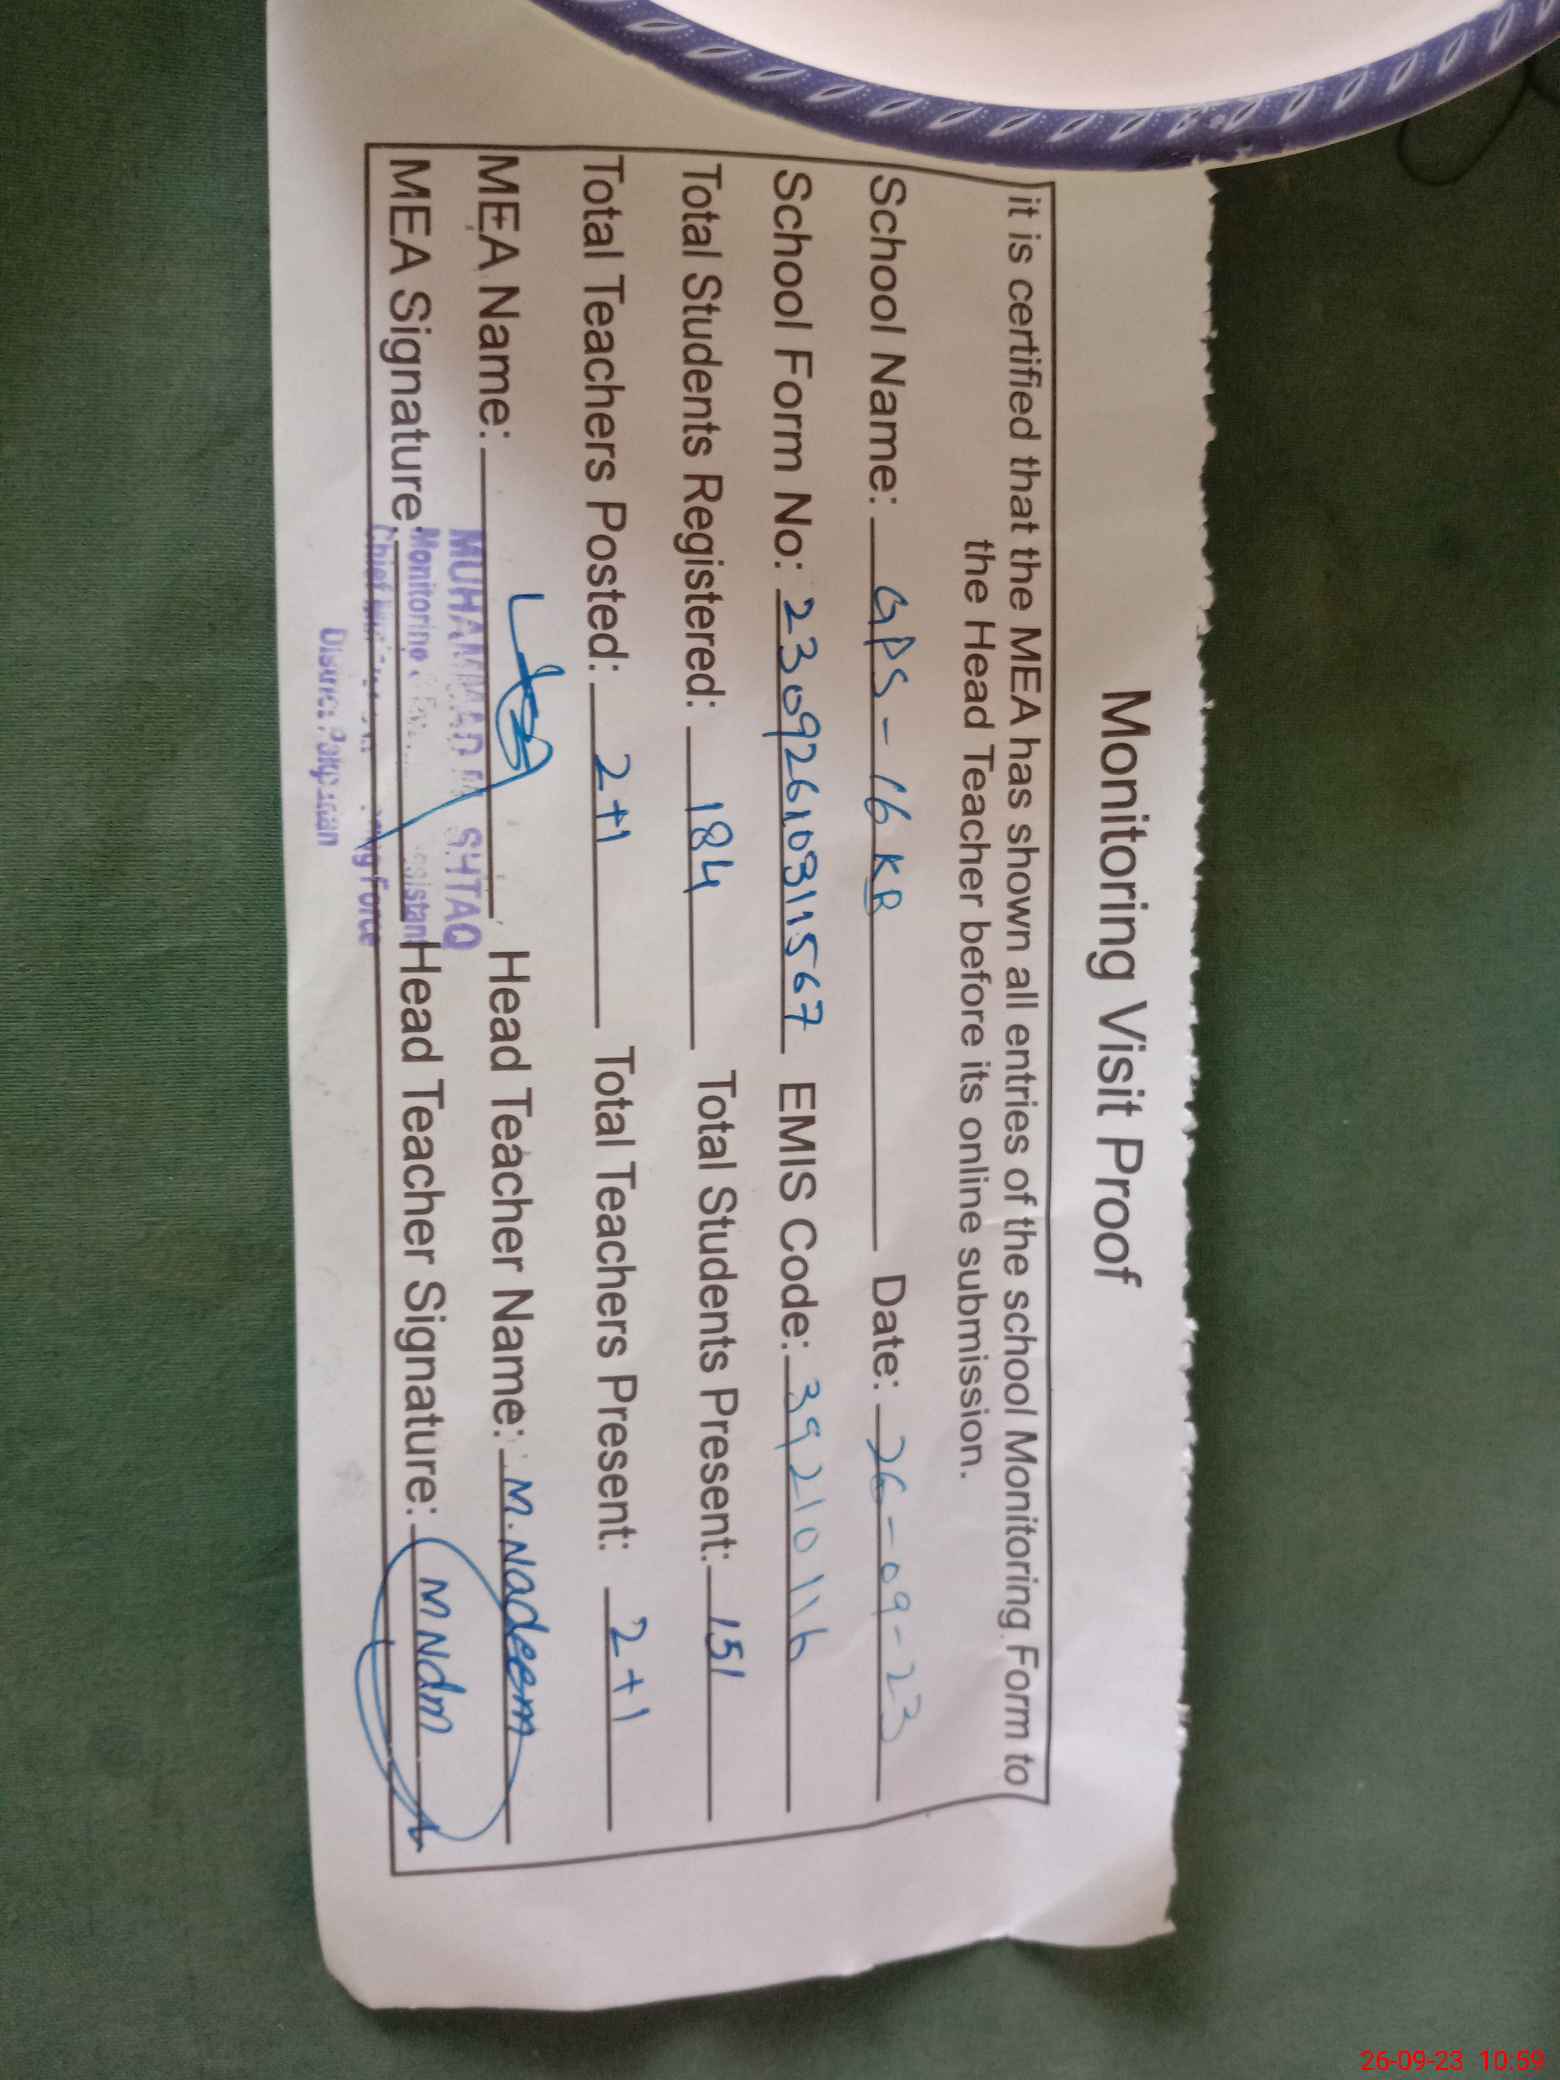 Monitoring Visit Proof
it is certified that the MEA has shown all entries of the school Monitoring Form to
the Head Teacher before its online submission.
School Name: GPS-16 KB Date: 26-09-23
School Form No: 23092610311567 EMIS Code: 39210116
Total Students Registered: 184 Total Students Present: 151
Total Teachers Posted: 2+1 Total Teachers Present: 2+1
MEA Name: Head Teacher Name: M. Nadeem
MUHAMMAD SHTAQ
MEA Signature: Head Teacher Signature: M Ndm
Monitoring
Chief Force
District Pakpattan
26-09-23 10:59